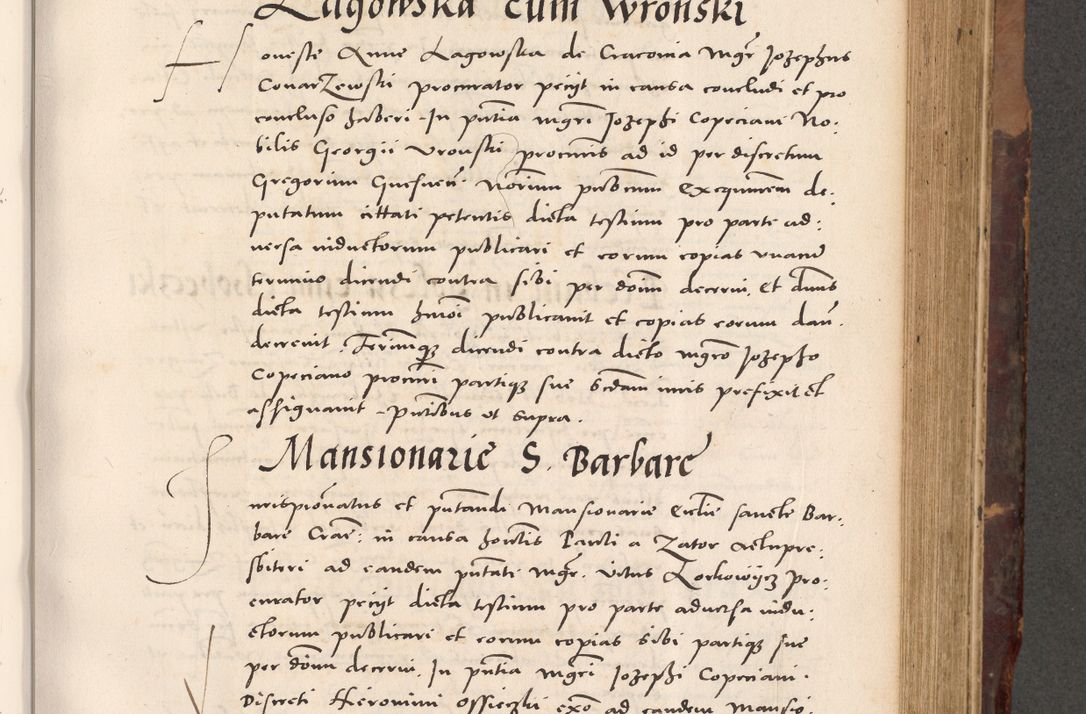 Lagowska cum Wronski
Honeste Anne Lagowska de Cracovia Mgr Jozephus
Conarzewski procurator petiit in causa concludi et pro
concluso haberi. In pntia mgri Jozephi Copeciani No:
bilis Georgii Vronski procuris ad id per discretum
Gregorium Notarium publicum Exequutorem de:
putatum cittati petentis dicta testium pro parte ad:
versa inductorum publicari et eorum copias unacum
termino dicendi contra sibi per dnum decerni. Et dnus
dicta testium hmoi publicavit et copias eorum dari
decrevit. Terminumque dicendi contra dicto mgro Jozepho
Copeciano procuri partique sue scdam iuris prefixit et
assignavit. Pntibus ut supra.
Mansionarie S. Barbare
Inrispronatus et pntandi Mansionarie Ecclie sancte Bar:
bare Crac: in causa hontis Pauli a Zator actu pre:
sbiteri ad eandem pntati mgr. Vitus Zorkowijcz pro:
curator petiit dicta testium pro parte adversa indu:
ctorum publicari et eorum copias sibi partique sue
per dnum decerni. In pntia mgri Jozephi Copeciani.
Discreti Hieronimi Ossieczki exo ad eandem Mansio: